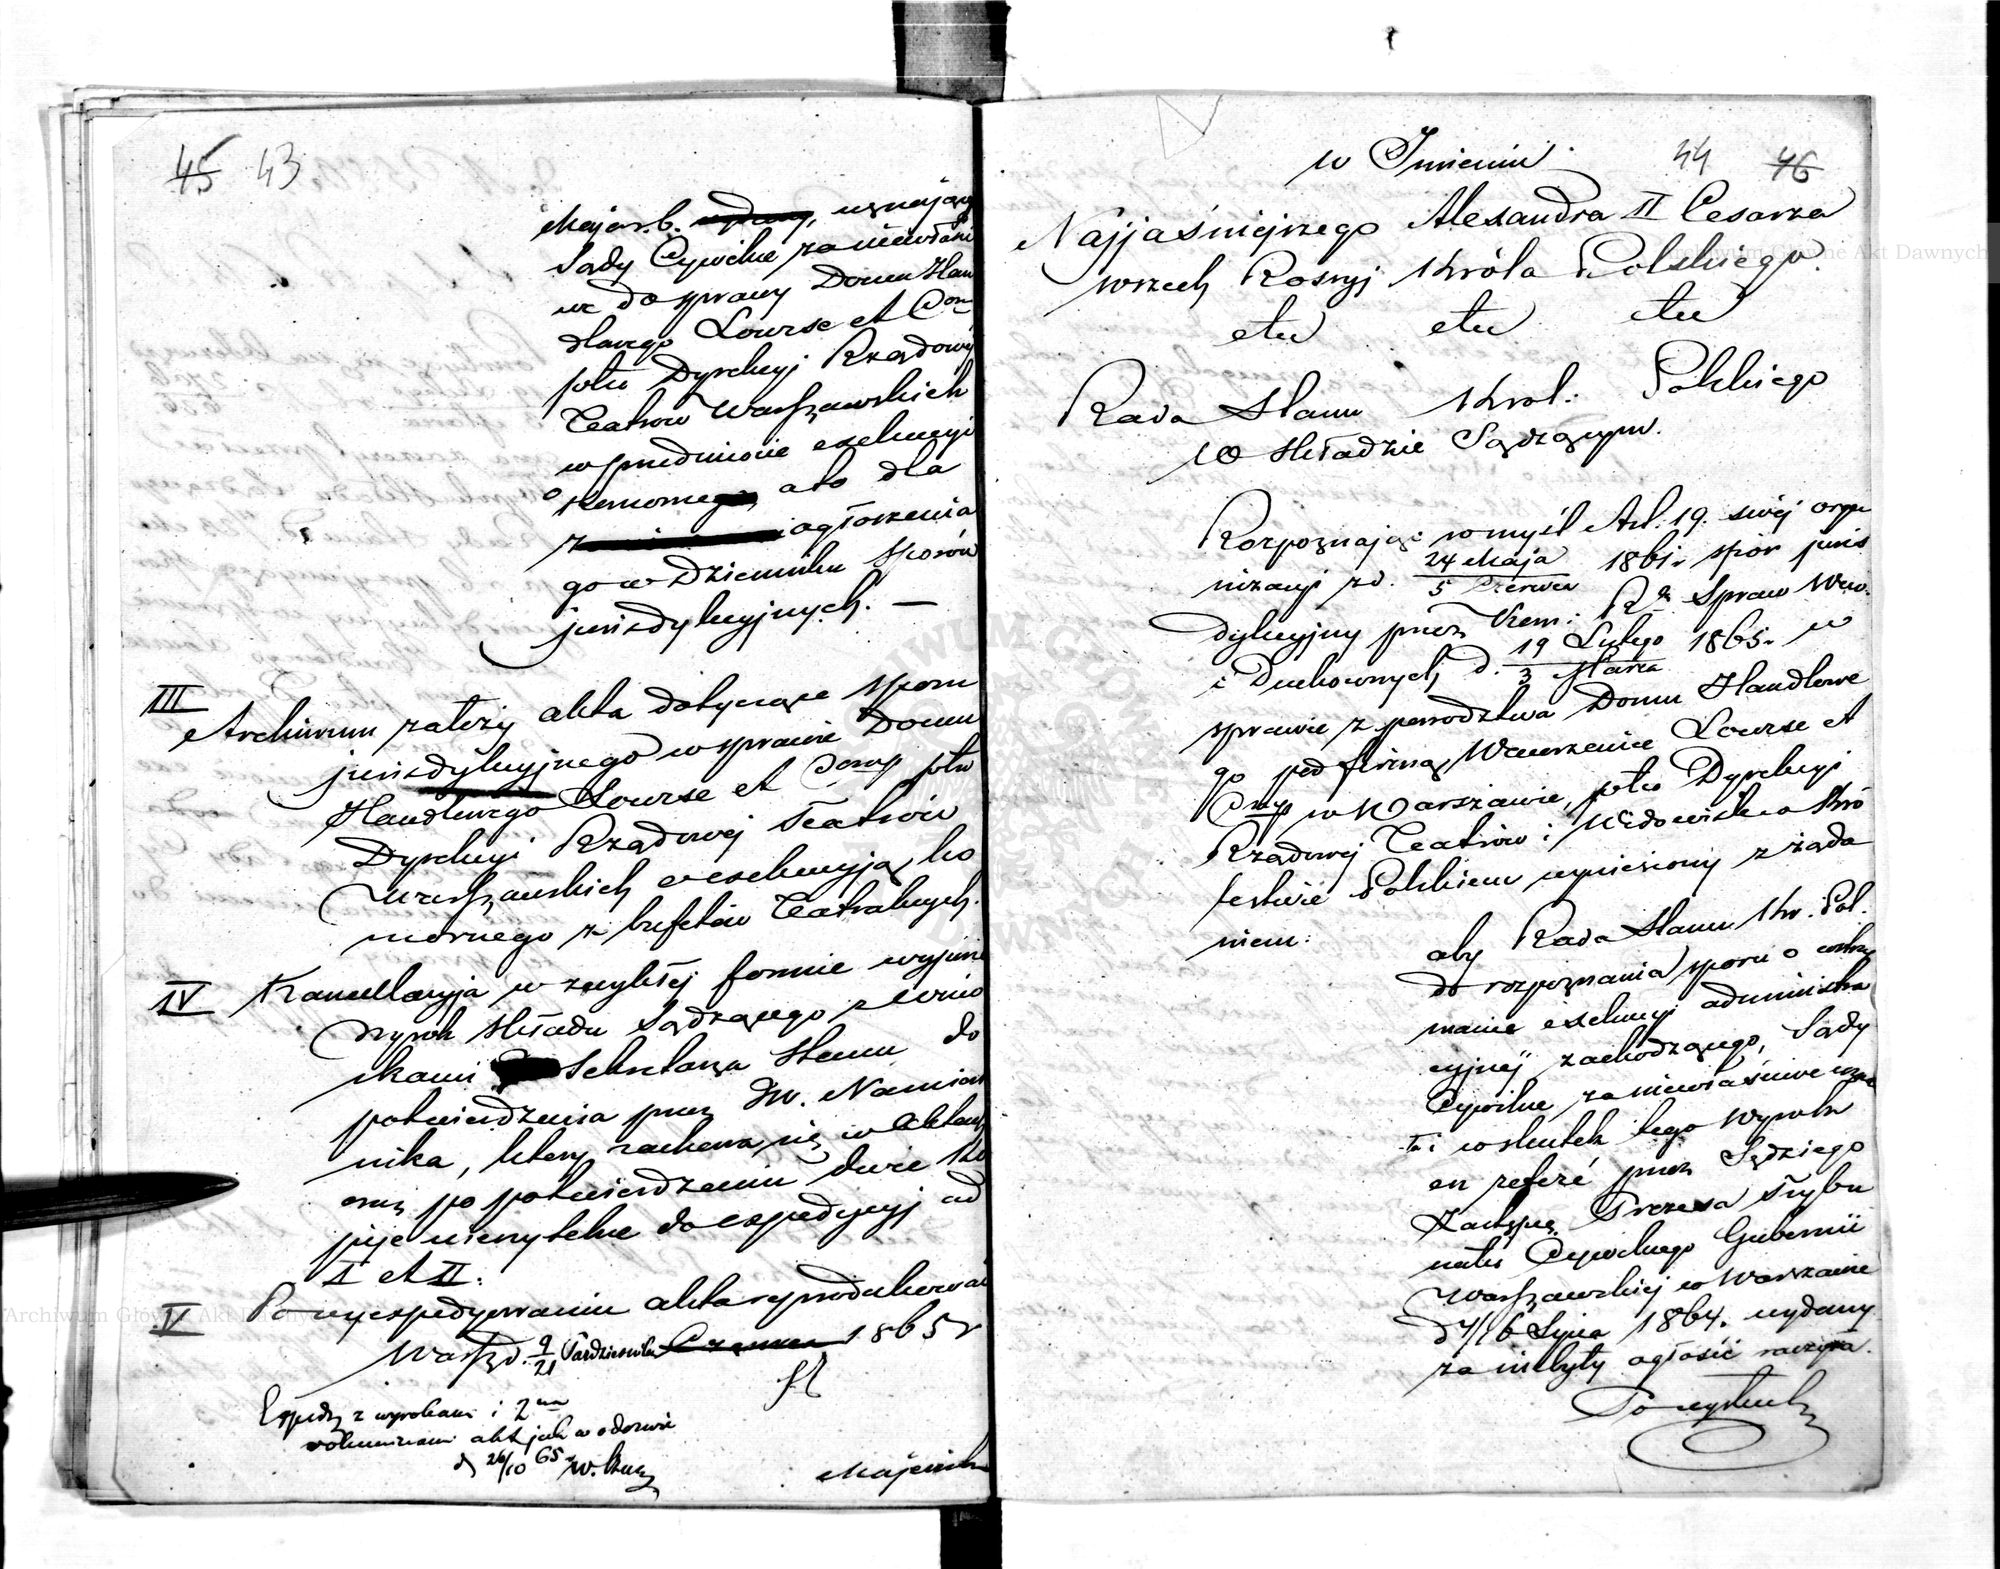 45 43
Maja r.b. uznający
Sądy Cywilne za niewłaści
we do sprawy Domu Han
dlowego Lourse et Com
ptko Dyrekcyi Rządowéj
Teatrów Warszawskich
w przedmiocie exekucyi
komornego, a to dla
ogłoszenia
go w Dzienniku sporów
jurisdykcyjnych. —
III
Archiwum założy akta dotyczące sporu
jurisdykcyjnego w sprawie Domu
Handlowego Lourse et Comp ptko
Dyrekcyi Rządowej Teatrów
Warszawskich o exekucyją ko
mornego z bufetów Teatralnych.
IV Kancellaryja w zwykłéj formie wyjmie
Wyrok Składu Sądzącego z wnio
skami Sekretarza Stanu do
potwierdzenia przez JW. Namiest
nika, który zachowa się w aktach
oraz po potwierdzeniu dwie ko
pije wierzytelne do expedycyj ad
I et II.
V Po wyexpedyowaniu akta reprodukować
Warsz. d. 9/21 Października 1865 r
Exped. z wyrokami i 2ma
voluminami akt jak w odezwie
d 26/10 65
Majewski
w Imieniu 44 46
Najjaśniejszego Alexandra II Cesarza
wszech Rossyj Króla Polskiego.
etc etc etc
Rada Stanu Król. Polskiego
w Składzie Sądzącym.
Rozpoznając w myśl Art. 19. swéj orga
nizacyi z d. 24 Maja / 5 Czerwca 1861 r spór juris
dykcyjny przez Kom: R. Spraw Wew.
i Duchownych, d. 19 Lutego / 3 Marca 1865 r w
sprawie z powodztwa Domu Handlowe
go pod firmą Wawrzeniec Lourse et
Comp w Warszawie, ptko Dyrekcyi
Rządowéj Teatrów i Widowisk w Kró
lestwie Polskiem wyniesiony z żąda
niem:
aby Rada Stanu Kr. Pol.
do rozpoznania sporu o wstrzy
manie exekucyi administra
cyjnéj zachodzącego, Sądy
Cywilne za niewłaściwe uzna
ła i w skutek tego Wyrok
en referé przez Sędziego
Zastępcę Prezesa Trybu
nału Cywilnego Gubernii
Warszawskiej w Warszawie
d 4/16 Lipca 1864. wydany
za niebyły ogłosić raczyła.